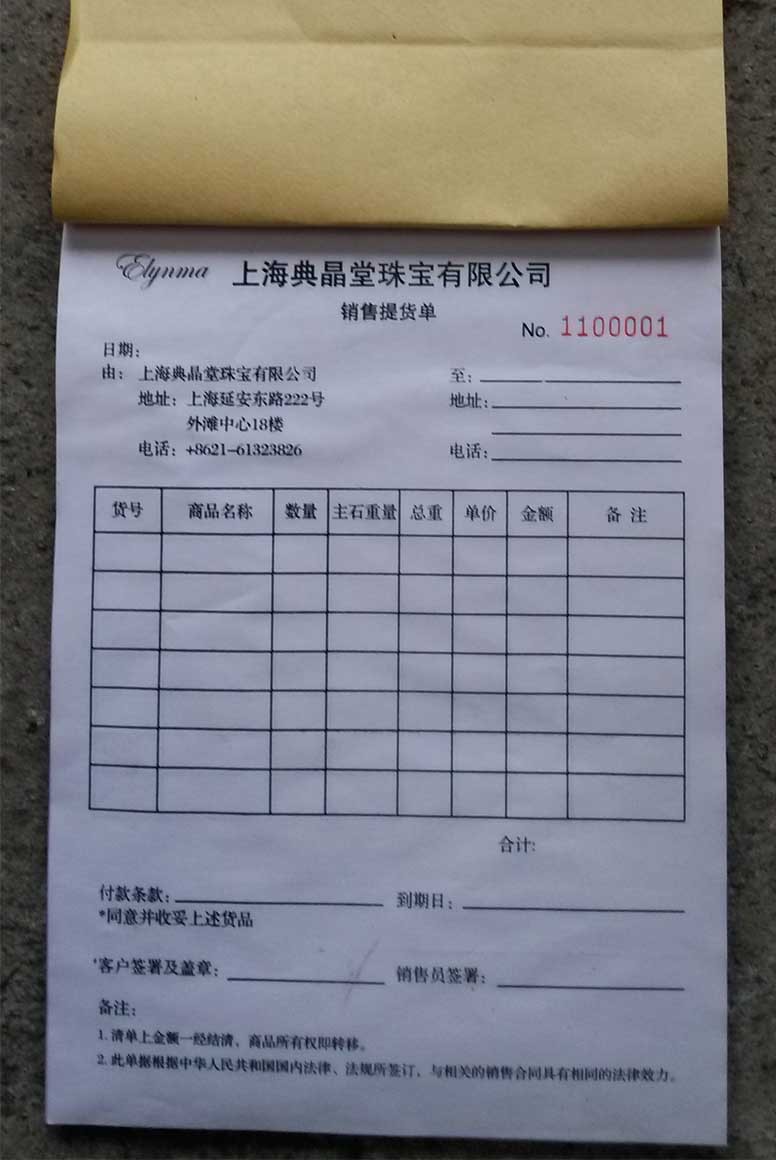 Elynma 上海典晶堂珠宝有限公司
销售提货单
No. 1100001
日期：
由： 上海典晶堂珠宝有限公司 至：
地址：上海延安东路222号 地址：
外滩中心18楼
电话：+8621-61323826 电话：
货号 商品名称 数量 主石重量 总重 单价 金额 备 注
合计：
付款条款： 到期日：
*同意并收妥上述货品
'客户签署及盖章： 销售员签署：
备注：
1. 清单上金额一经结清、商品所有权即转移。
2. 此单据根据中华人民共和国国内法律、法规所签订，与相关的销售合同具有相同的法律效力。